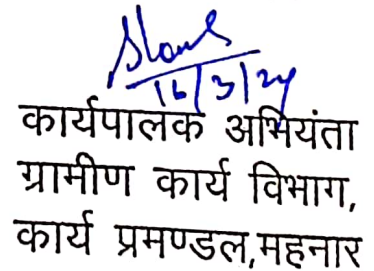 16/3/24
कार्यपालक अभियंता
ग्रामीण कार्य विभाग,
कार्य प्रमण्डल,महनार